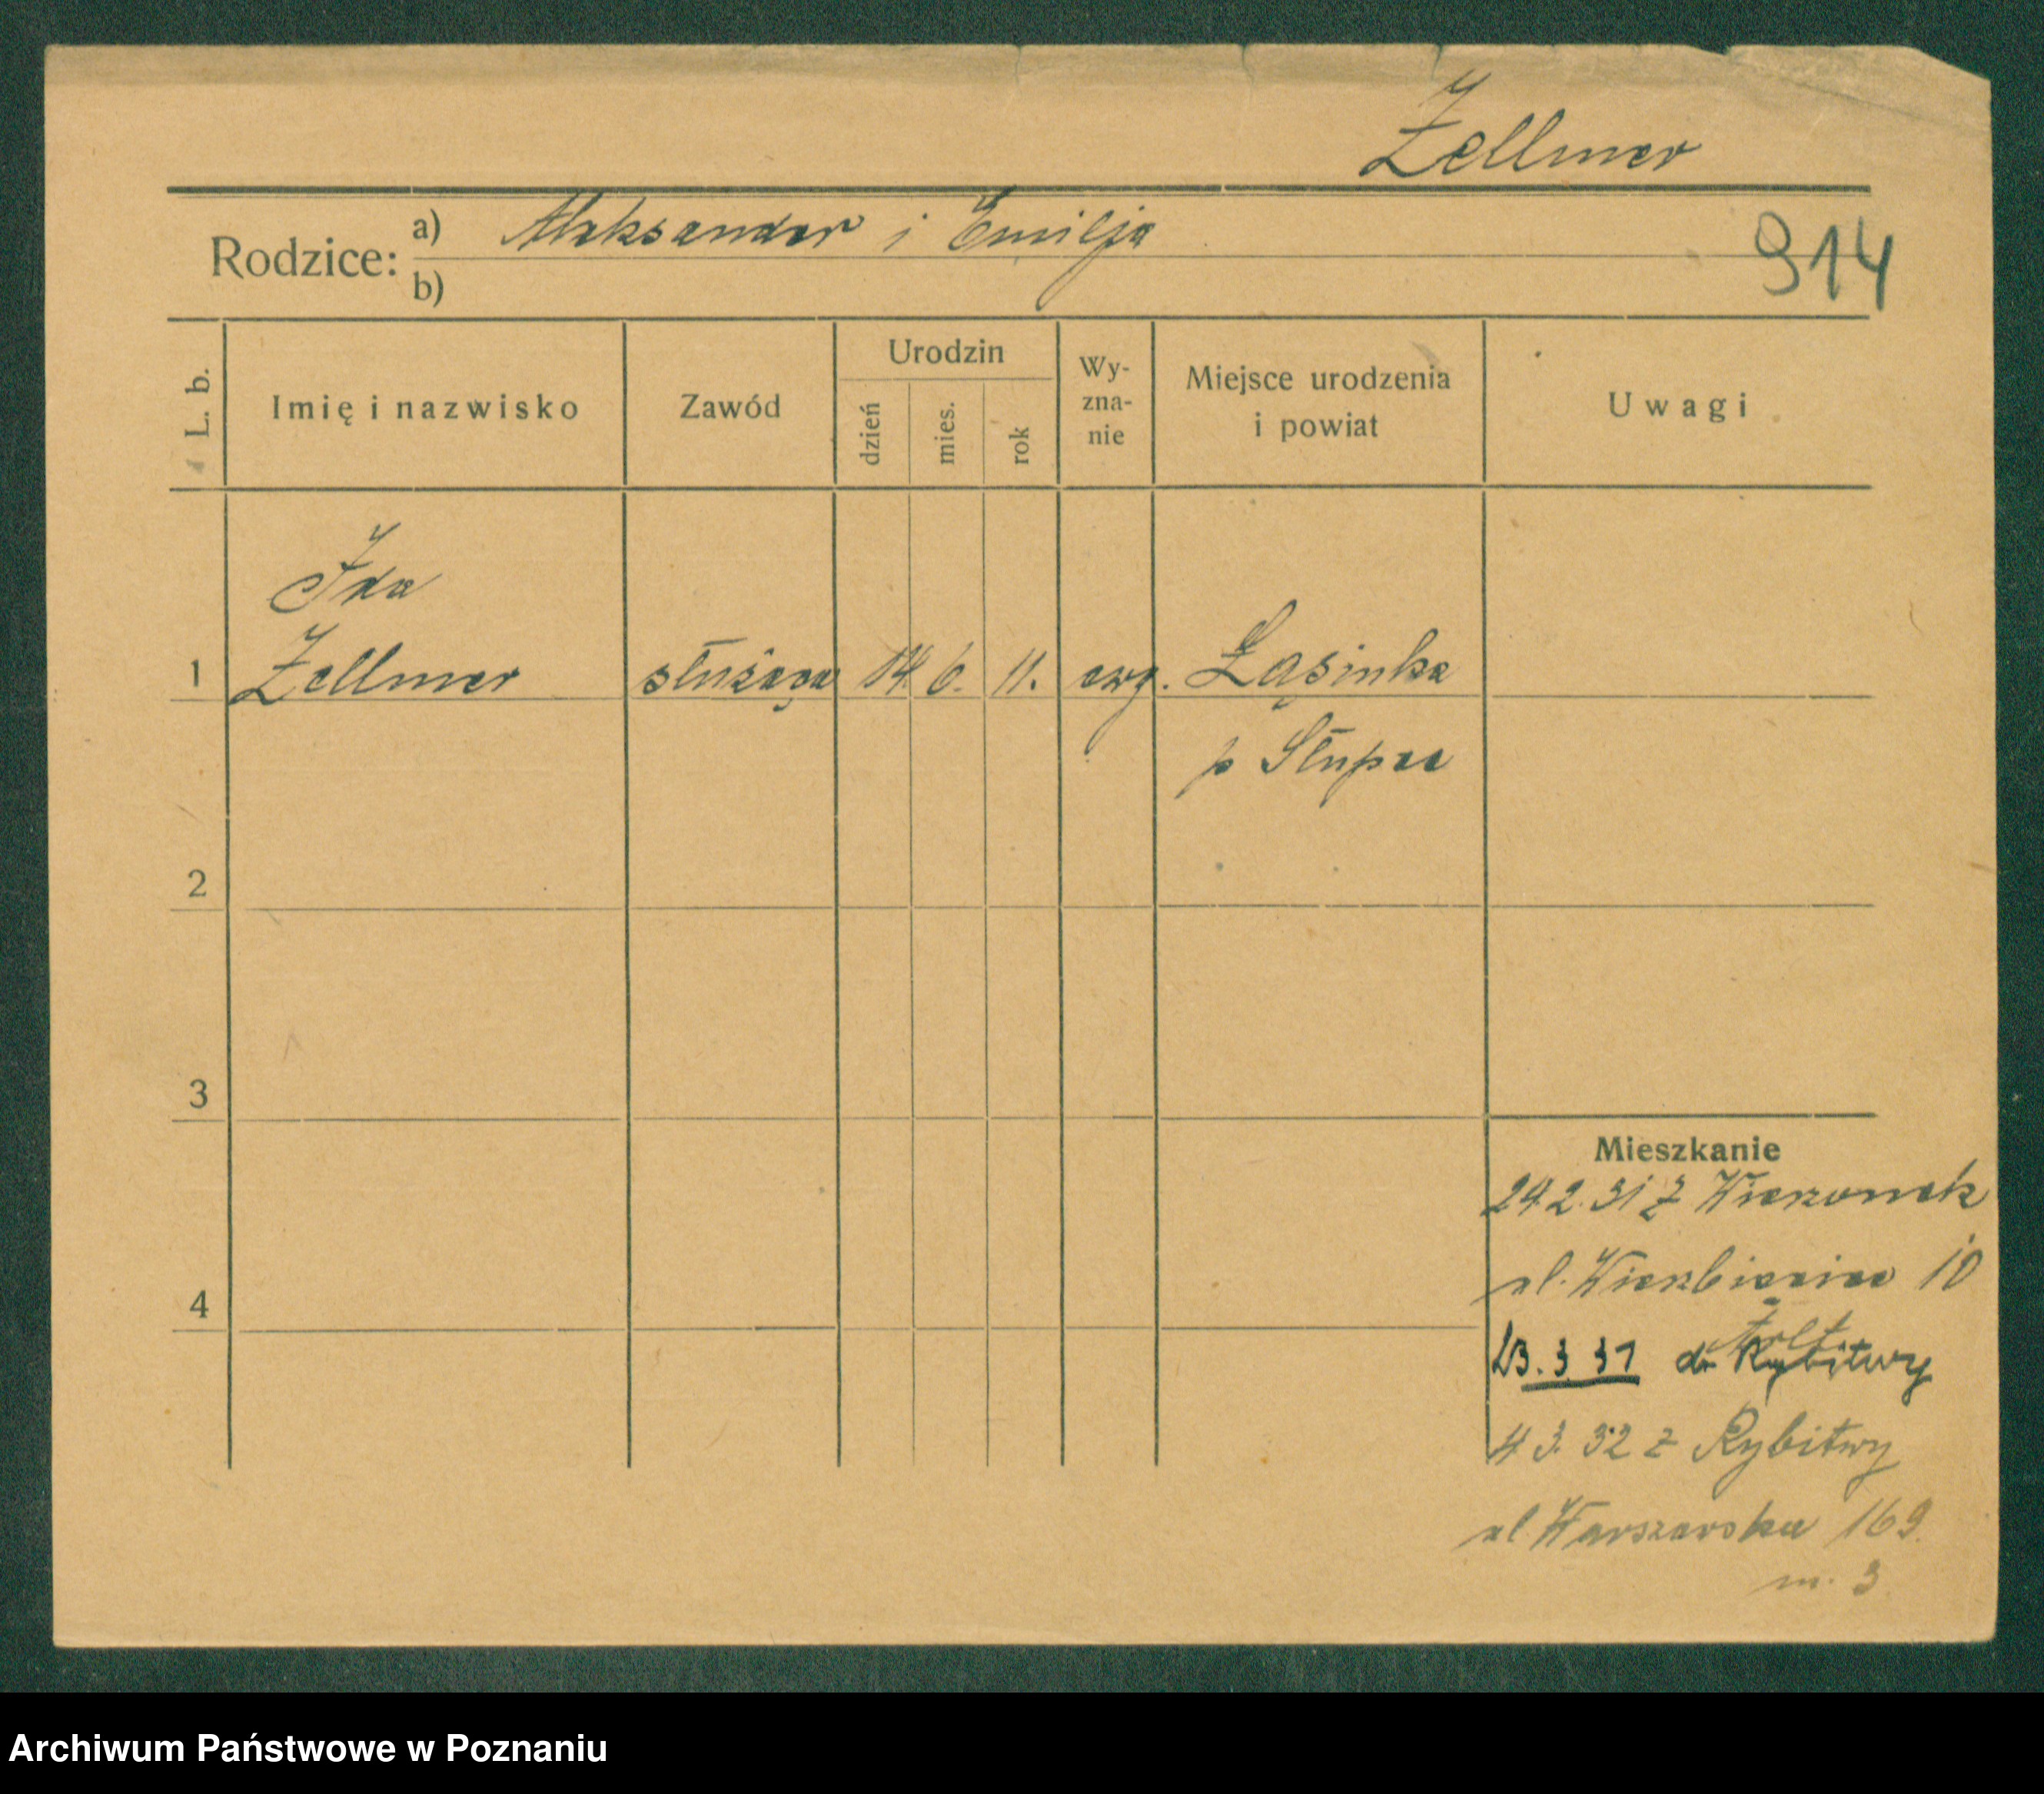 Zellmer
Rodzice:
a) Aleksander i Emilja
b)
914
L. b.
Imię i nazwisko
Zawód
Urodzin
dzień
mies.
rok
Wy-
zna-
nie
Miejsce urodzenia
i powiat
Uwagi
Ida
1 Zellmer służąca 14. 6. 11. ewg. Łąsinka
p Słupca
2
3
Mieszkanie
24.2.31 z Wierzonek
ul. Wierzbięcice 10
4
23.3 31 do Rybitwy
4 3. 32 z Rybitwy
ul Warszawska 169.
m. 3
Archiwum Państwowe w Poznaniu